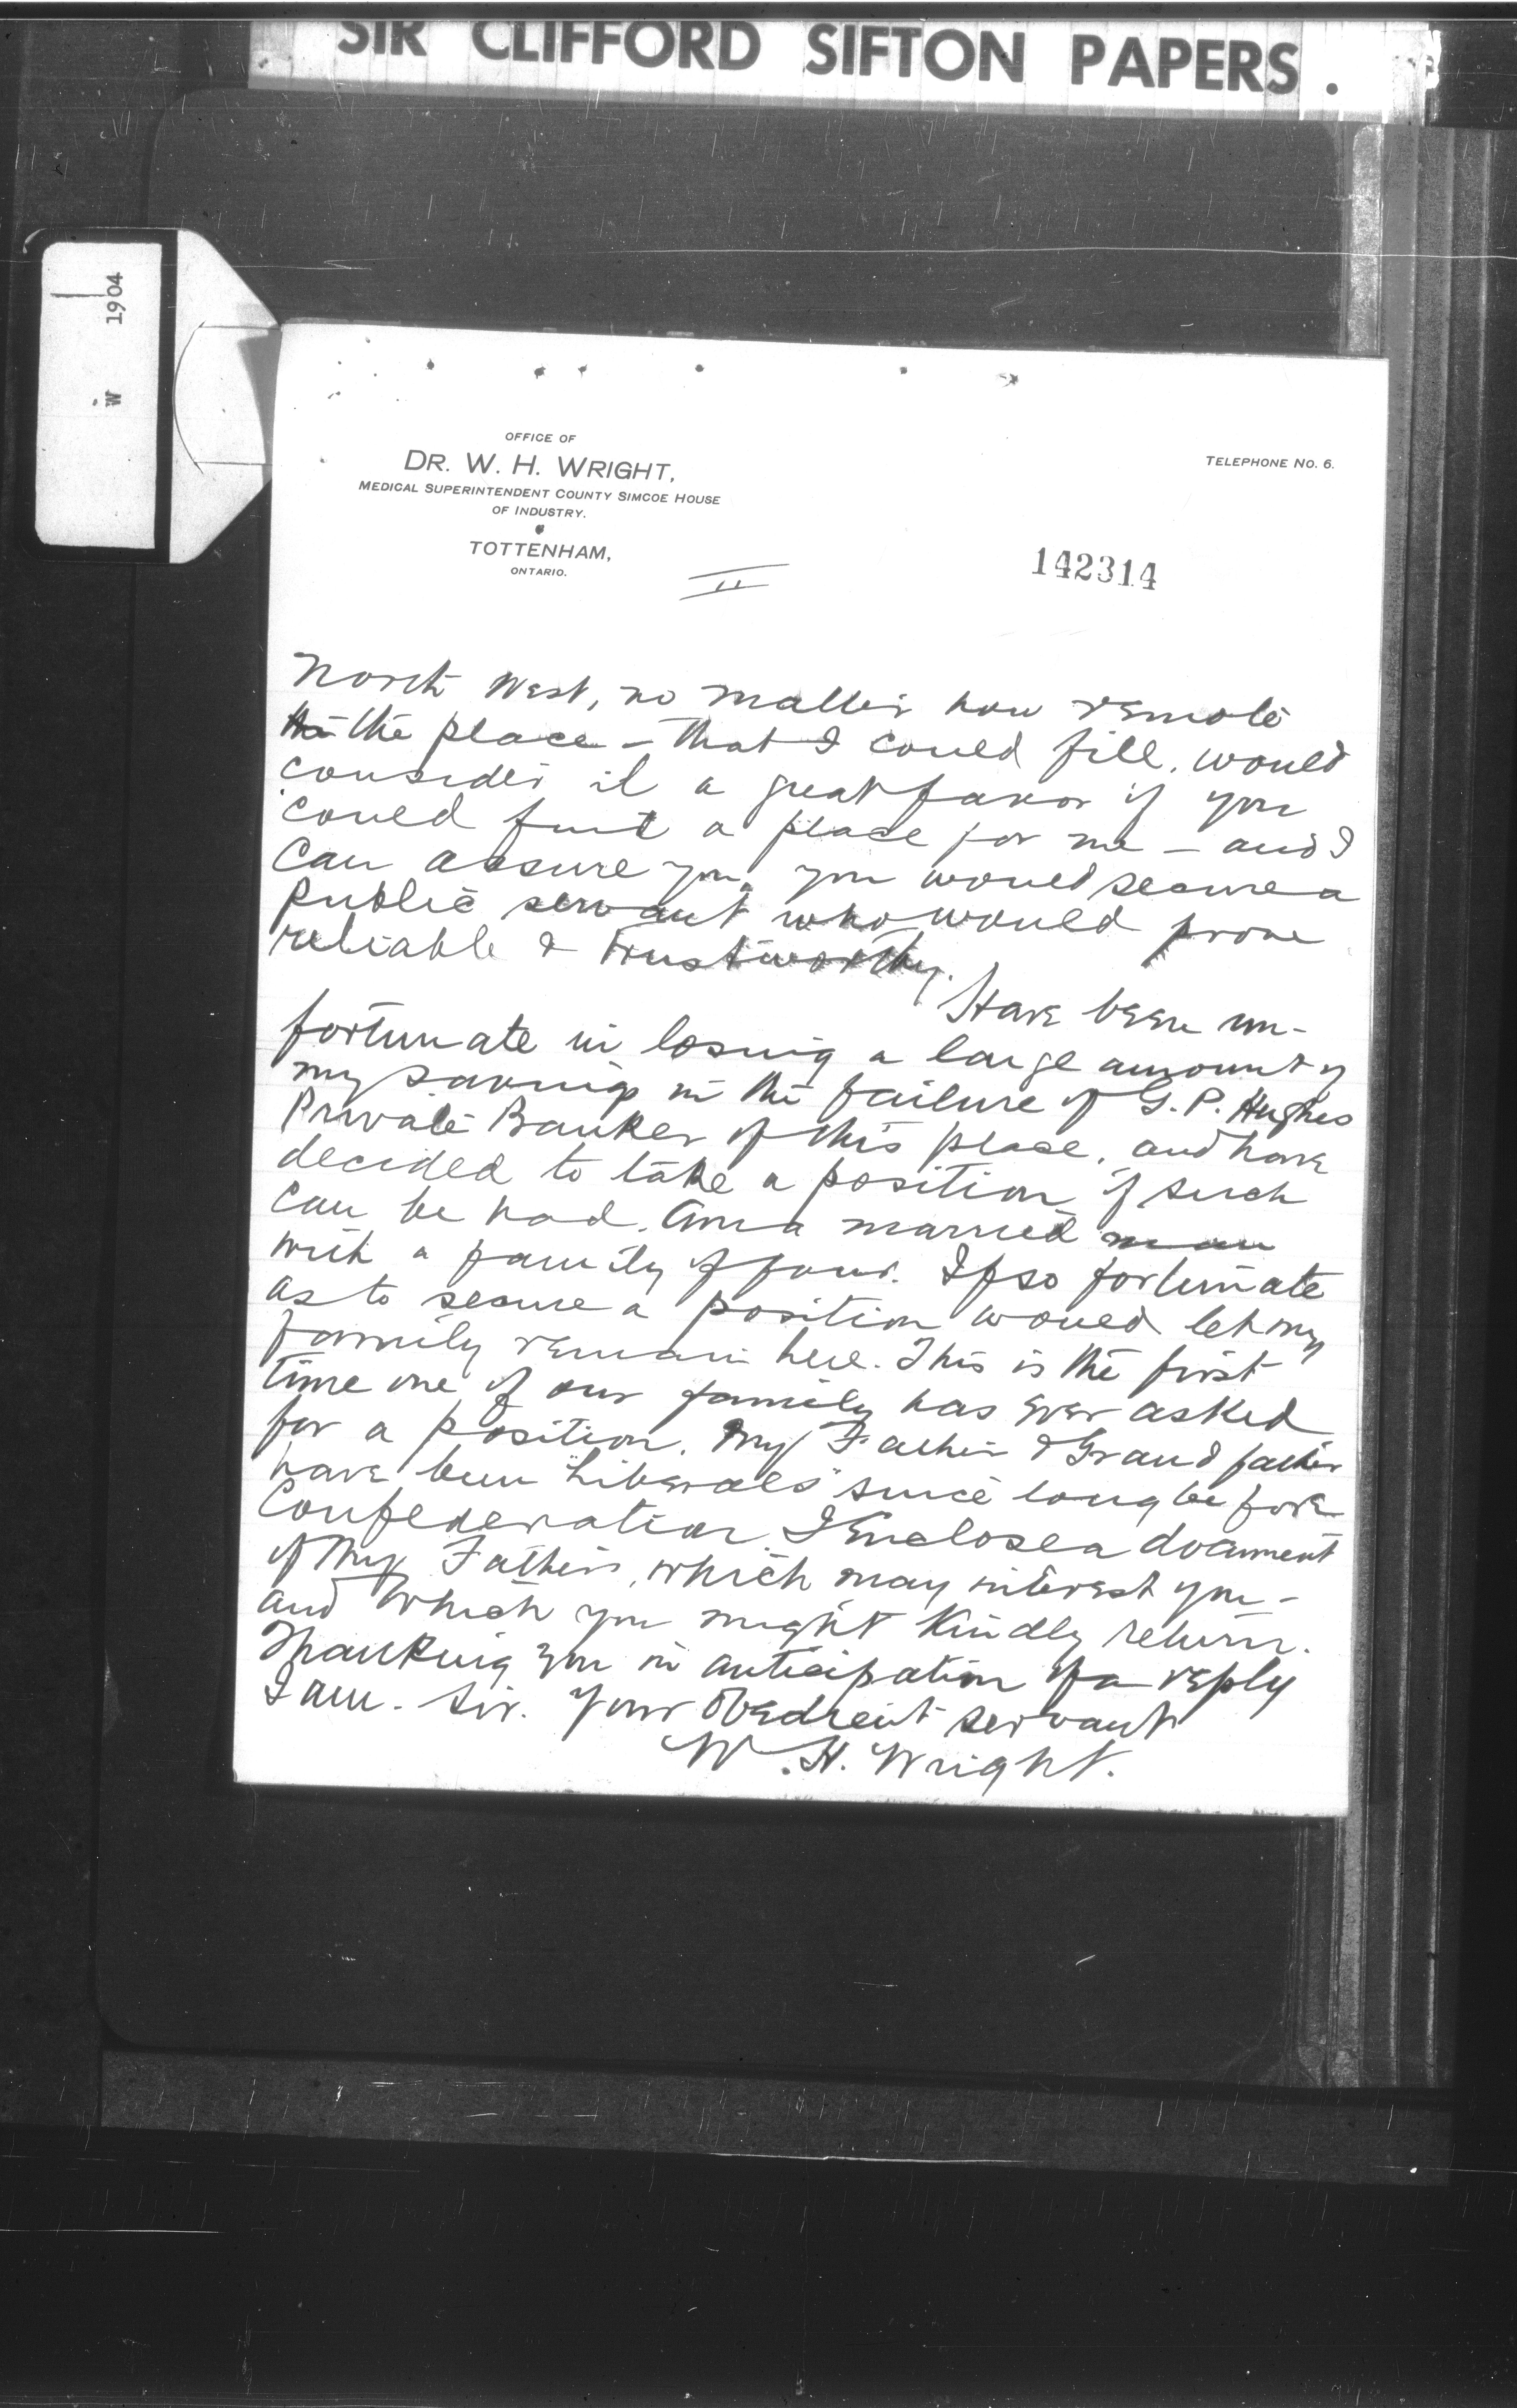 SIR CLIFFORD SIFTON PAPERS.
W 1904
OFFICE OF
DR. W. H. WRIGHT,
MEDICAL SUPERINTENDENT COUNTY SIMCOE HOUSE
OF INDUSTRY.
TOTTENHAM,
ONTARIO.
TELEPHONE NO. 6.
142314
II
North West, no matter how remote
the place – that I could fill, would
consider it a great favor if you
could find a place for me – and I
can assure you, you would secure a
public servant who would prove
reliable & trustworthy.
Have been un-
fortunate in losing a large amount of
my savings in the failure of G. P. Hughes
Private Banker of this place, and have
decided to take a position if such
can be had. Am a married man
with a family of four. If so fortunate
as to secure a position would let my
family remain here. This is the first
time one of our family has ever asked
for a position. My Father & Grand father
have been "Liberals" since long before
Confederation. I Enclose a document
of My Fathers, which may interest you –
and which you might Kindly return.
Thanking you in anticipation of a reply
I am. Sir. Your Obedient servant
W. H. Wright.